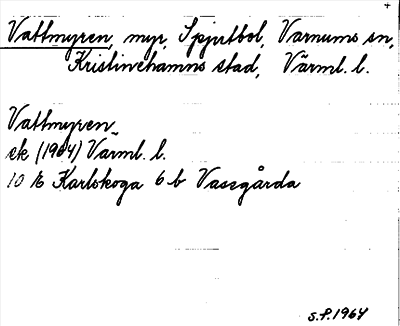 Vattmyren, myr, Spjutbol, Varnums sn,
Kristinehamns stad, Värml. l.
Vattmyren
ek (1964) Värml. l.
10 E Karlskoga 6 b Vassgårda
S.P. 1964